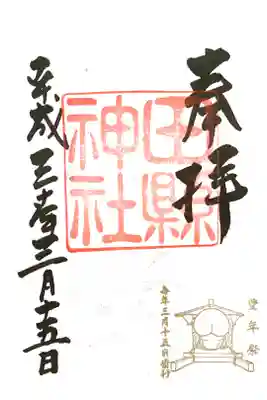 奉拝
田縣
神社
平成三十年三月十五日
豐年祭
毎年三月十五日齋行